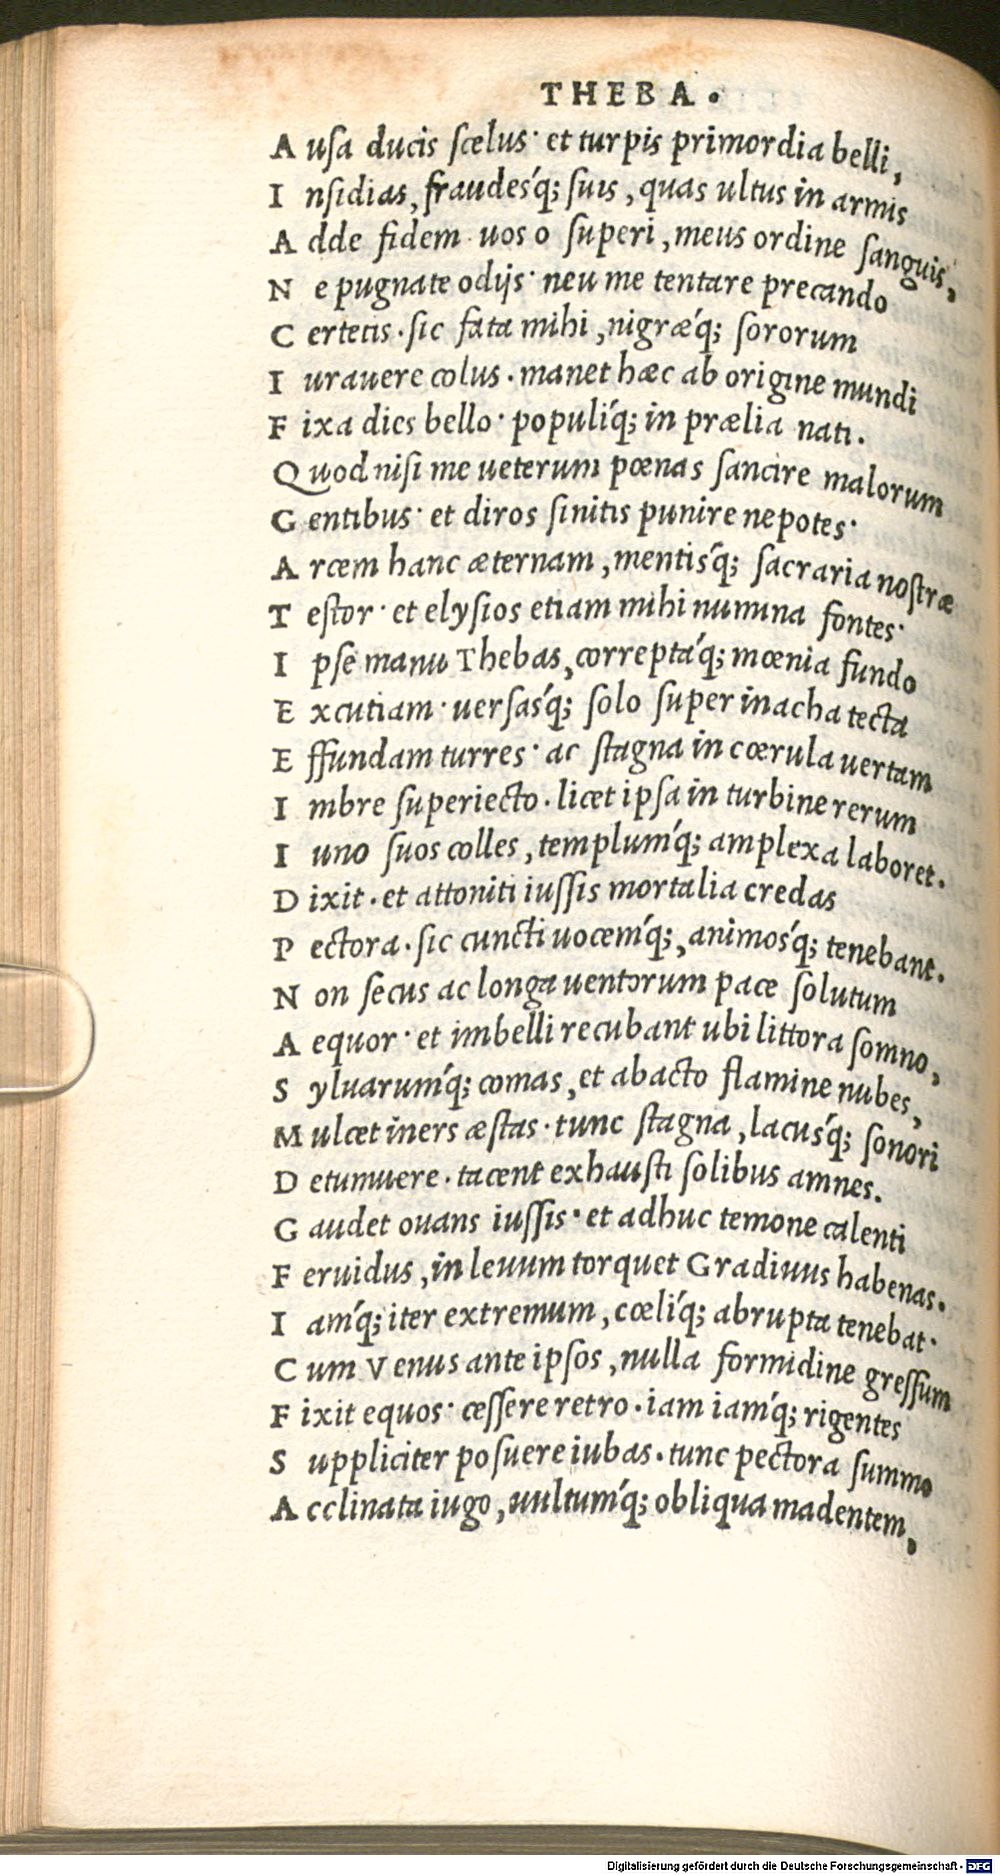 THEBA.
A usa ducis scelus· et turpis primordia belli,
I nsidias, fraudesq́; suis, quas ultus in armis
A dde fidem· uos o superi, meus ordine sanguis,
N e pugnate odijs· neu me tentare precando
C ertetis· sic fata mihi, nigræq́; sororum
I urauere colus· manet hæc ab origine mundi
F ixa dies bello· populiq́; in prælia nati.
Quod nisi me ueterum pœnas sancire malorum
G entibus· et diros sinitis punire nepotes·
A rcem hanc æternam, mentisq́; sacraria nostræ
T estor· et elysios etiam mihi numina fontes·
I pse manu Thebas, correptaq́; mœnia fundo
E xcutiam· uersasq́; solo super inacha tecta
E ffundam turres· ac stagna in cœrula uertam
I mbre superiecto· licet ipsa in turbine rerum
I uno suos colles, templumq́; amplexa laboret.
D ixit· et attoniti iussis mortalia credas
P ectora· sic cuncti uocemq́;, animosq́; tenebant.
N on secus ac longa uentorum pace solutum
A equor· et imbelli recubant ubi littora somno,
S yluarumq́; comas, et abacto flamine nubes,
M ulcet iners æstas· tunc stagna, lacusq́; sonori
D etumuere· tacent exhausti solibus amnes.
G audet ouans iussis· et adhuc temone calenti
F eruidus, in leuum torquet Gradiuus habenas.
I amq́; iter extremum, cœliq́; abrupta tenebat·
C um Venus ante ipsos, nulla formidine gressum
F ixit equos· cessere retro· iam iamq́; rigentes
S uppliciter posuere iubas· tunc pectora summo
A cclinata iugo, uultumq́; obliqua madentem,
Digitalisierung gefördert durch die Deutsche Forschungsgemeinschaft - DFG